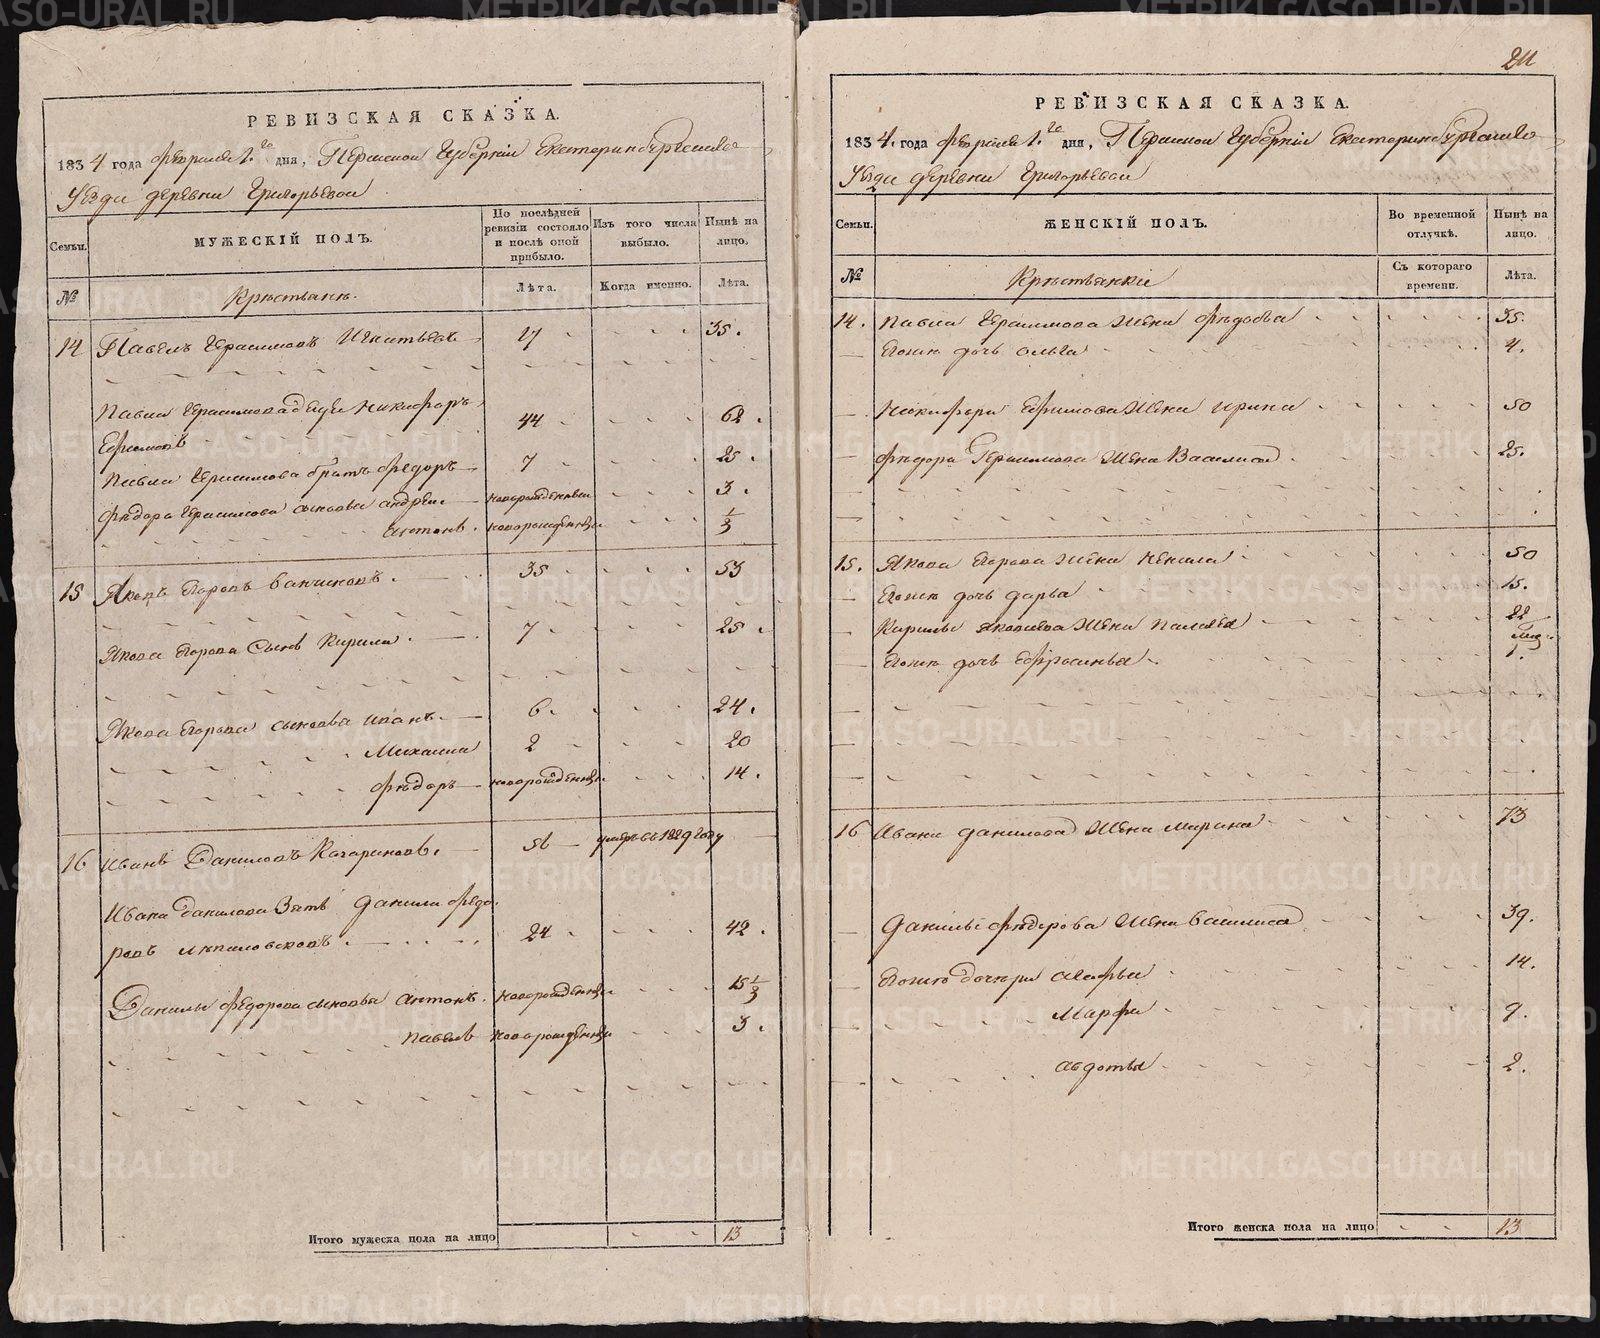 РЕВИЗСКАЯ СКАЗКА.
1834 года февраля 1.го дня, Пермской Губернiи Екатеринбургскаго
Уѣзда деревни Григорьевой
Семьи.
МУЖЕСКIЙ ПОЛЪ.
По послѣдней ревизiи состояло и послѣ оной прибыло.
Изъ того числа выбыло.
Нынѣ на лицо.
№
Крестьянѣ.
Лѣта.
Когда именно.
Лѣта.
14 Павелъ Герасимовъ Игнатьевъ 17 35.
Павла Герасимова дядя Никифоръ
Ефимовъ 44 62.
Павла Герасимова братъ Федоръ 7 25.
Федора Герасимова сыновья Андрей новорожденный 3.
Антонъ новорожденный 1/3
15 Яковъ Егоровъ 35 53
Якова Егорова сынъ Кирила 7 25.
Якова Егорова сыновья Иванъ 6. 24.
Михаила 2 20
Федоръ новорожденный 14.
16 Иванъ Даниловъ 56 умеръ въ 1829 году
Ивана Данилова Зять Данила Федо
ровъ 24 42.
Данилы Федорова сыновья Антонъ новорожденный 15 1/2
Павелъ новорожденный 3.
Итого мужеска пола на лицо 13
211
РЕВИЗСКАЯ СКАЗКА.
1834. года февраля 1.го дня, Пермской Губернiи Екатеринбургскаго
Уѣзда деревни Григорьевой
Семьи.
ЖЕНСКIЙ ПОЛЪ.
Во временной отлучкѣ.
Нынѣ на лицо.
№
Крестьянки
Съ котораго времени.
Лѣта.
14. Павла Герасимова жена Федосья 35.
Егоже дочь Ольга 4.
Никифора Ефимова жена Ирина 50
Федора Герасимова жена Василиса 25.
15. Якова Егорова жена Ненила 50
Егоже дочь Дарья 15.
Кирилы Яковлева жена Палагея 22
Егоже дочь Ефросинья 1.
16 Ивана Данилова жена Марина 73
Данилы Федорова жена Василиса 39.
Егоже дочери Агафья 14.
Марфа 9.
Авдотья 2.
Итого женска пола на лицо 13
METRIKI.GASO-URAL.RU